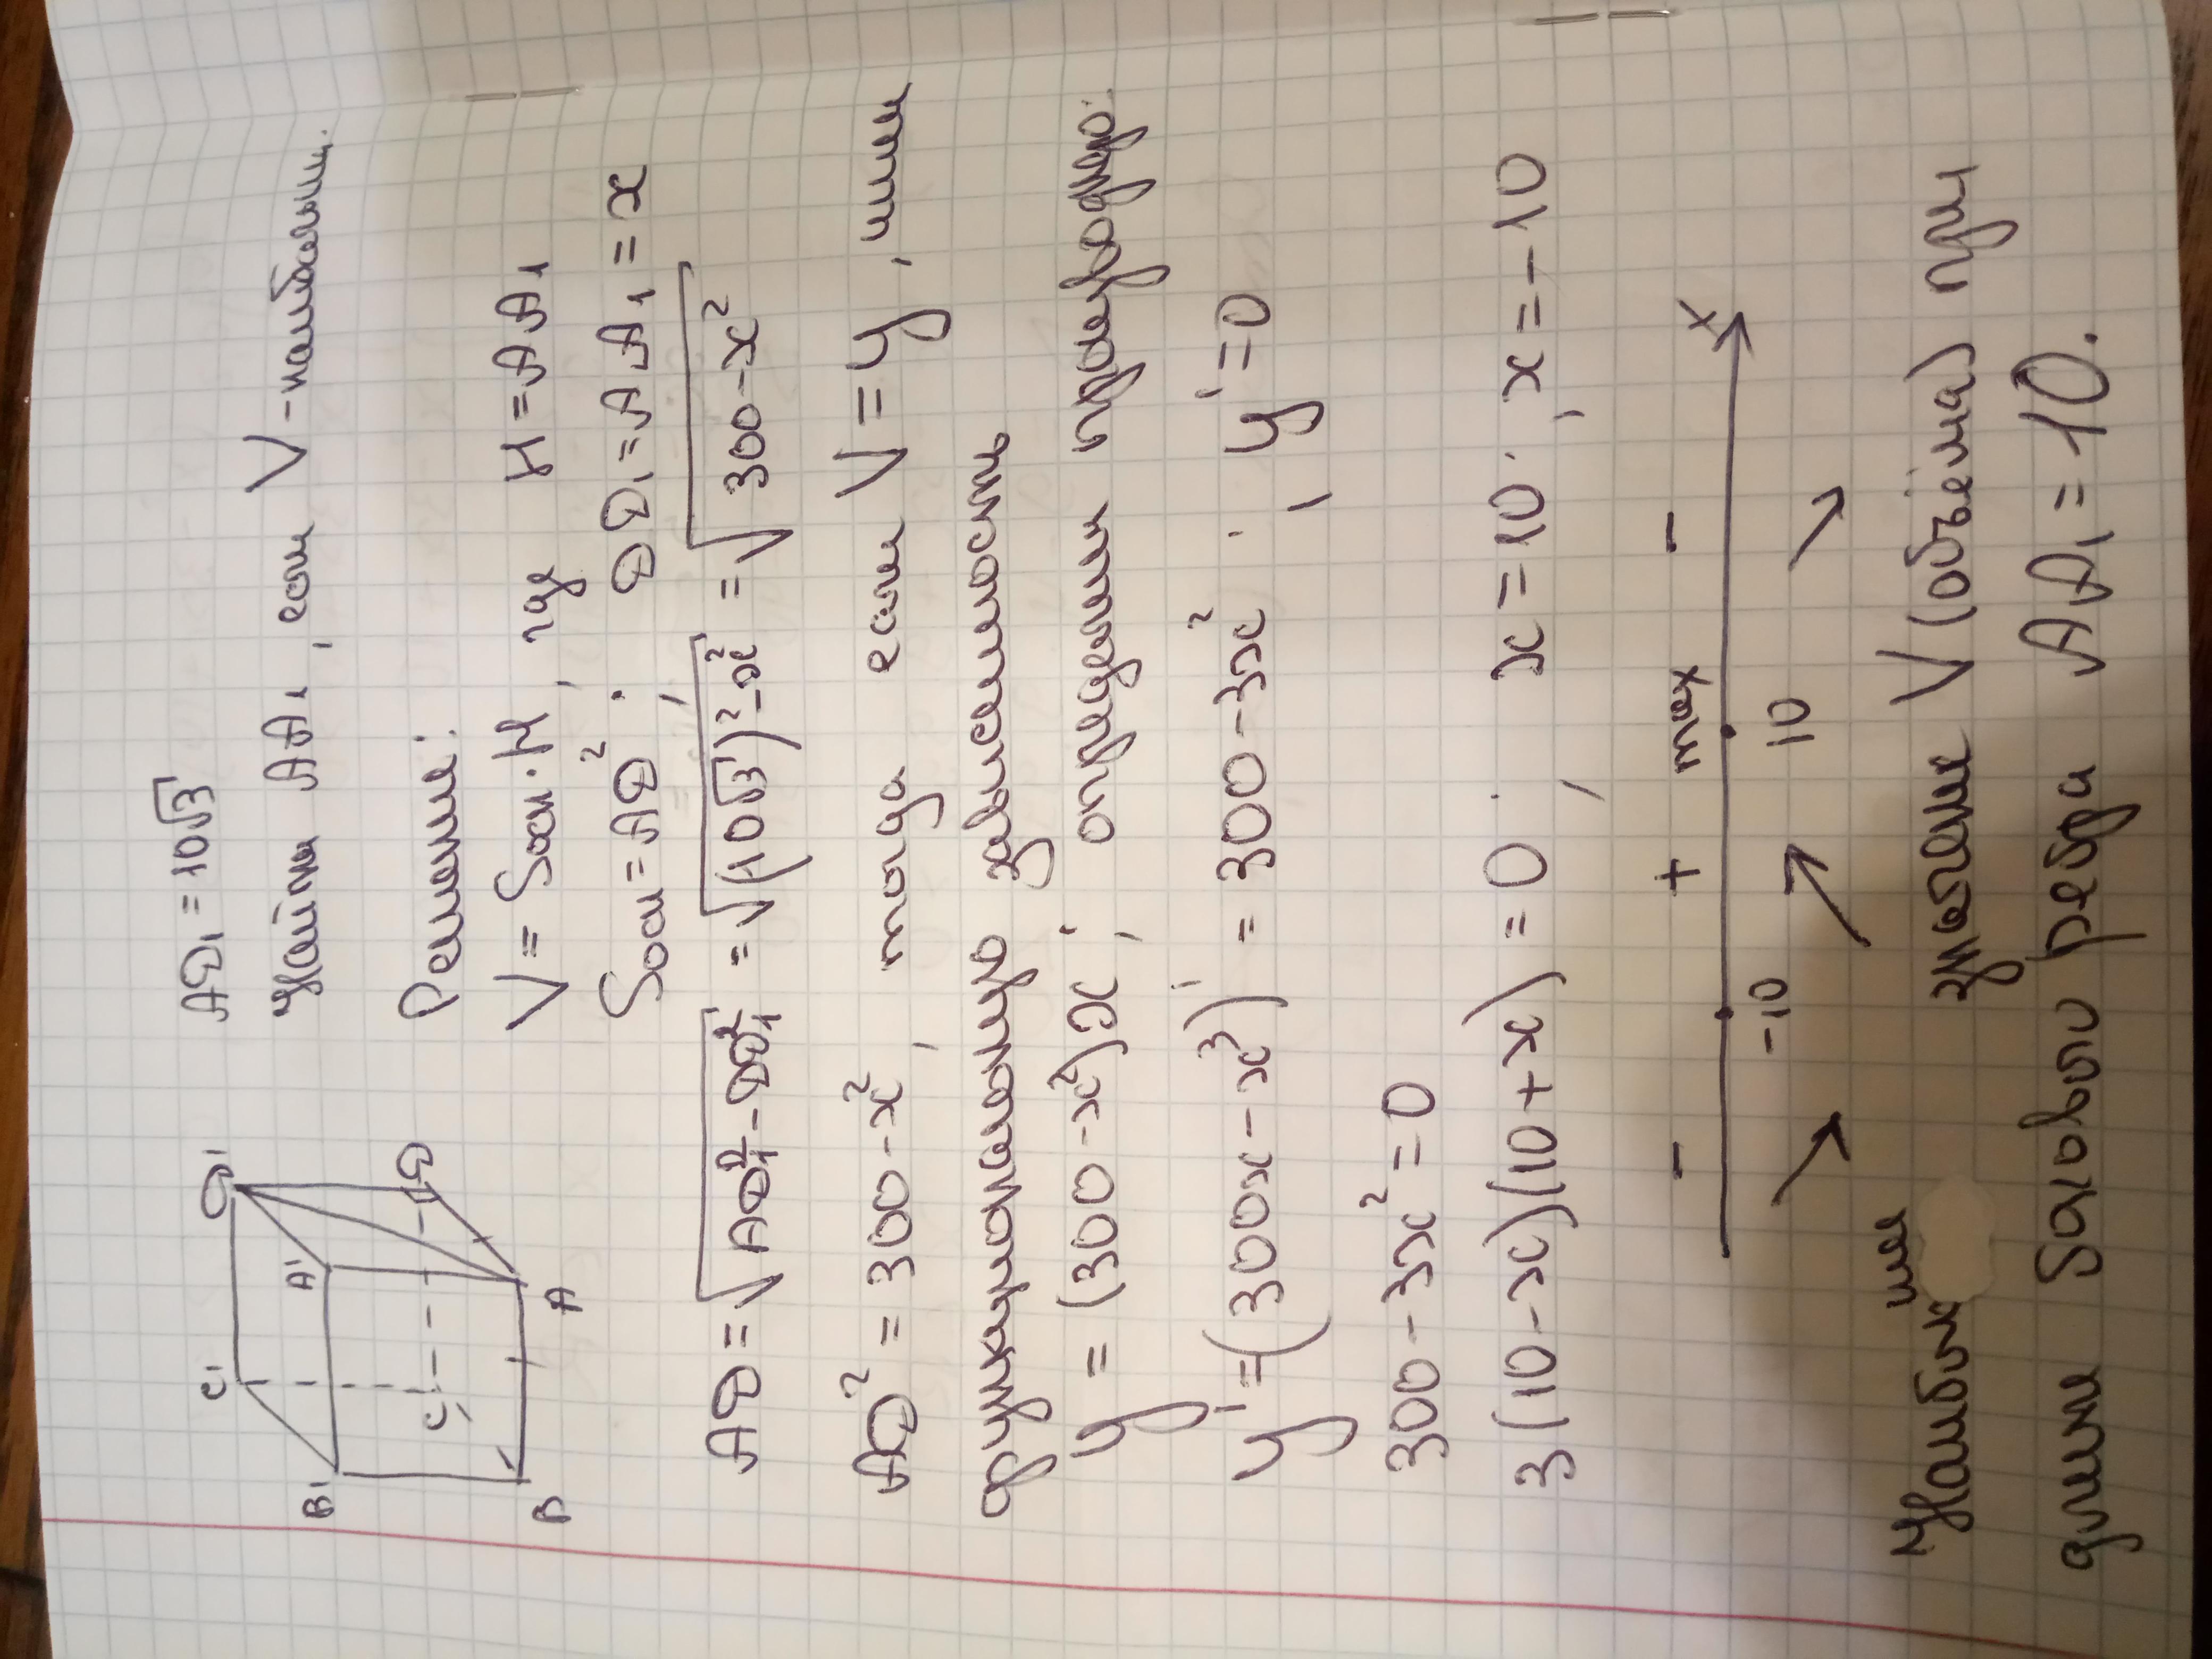 AD₁ = 10√3
Найти AA₁, если V - наибольш.
Решение:
V = Sосн·H, где H = AA₁
Sосн = AD²; DD₁ = AA₁ = x
AD = √(AD₁² - DD₁²) = √((10√3)² - x²) = √(300 - x²)
AD² = 300 - x², тогда если V = y, имеем
функциональную зависимость
y = (300 - x²)x; определим производную:
y' = (300x - x³)' = 300 - 3x²; y' = 0
300 - 3x² = 0
3(10 - x)(10 + x) = 0; x = 10; x = -10
- + max - x
-10 10
Наибольшее значение V (объёма) при
длине бокового ребра AA₁ = 10.
C' D'
B' A'
C D
B A